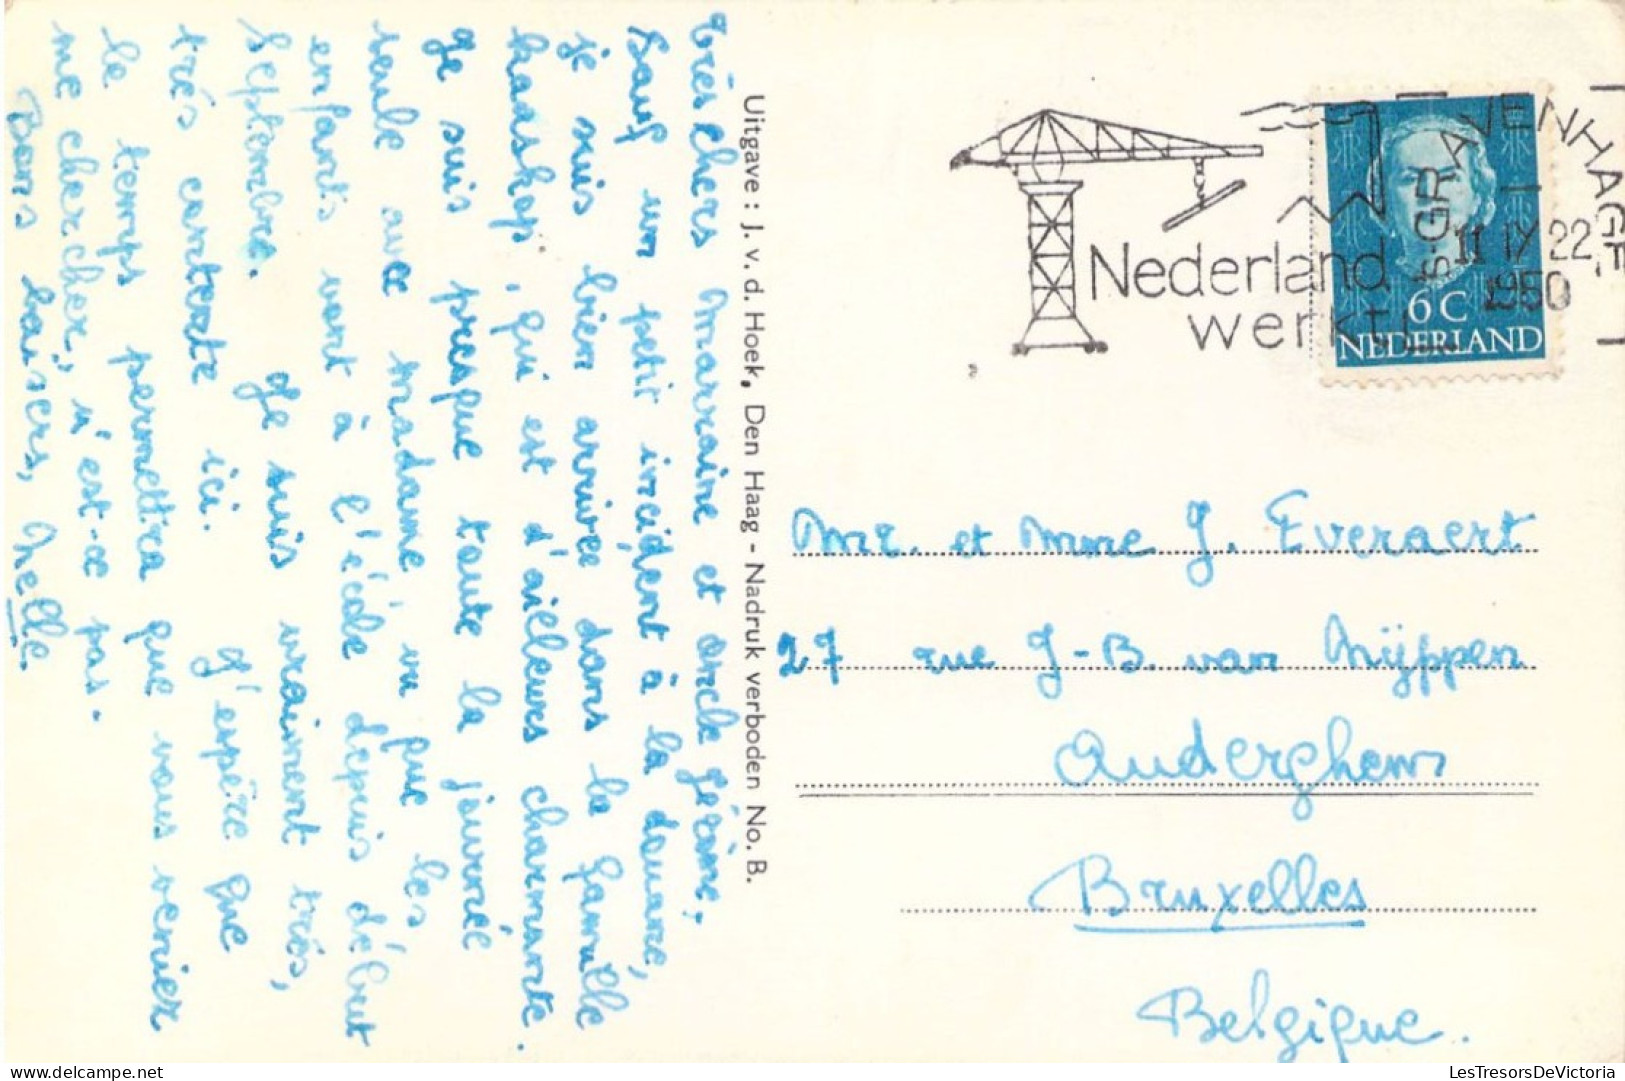 Très chers Marraine et oncle Jérôme,
Sauf un petit incident à la douane,
je suis bien arrivée dans la famille
Kaaskop, qui est d'ailleurs charmante.
Je suis presque toute la journée
seule avec madame, vu que les
enfants vont à l'école depuis début
Septembre. Je suis vraiment très,
très contente ici. J'espère que
le temps permettra que vous veniez
me chercher, n'est-ce pas.
Bons baisers, Nelle.
Uitgave: J. v. d. Hoek, Den Haag - Nadruk verboden No. B.
'S-GRAVENHAGE
11 IX 22
1950
Nederland
werkt
6 C
NEDERLAND
Mr. et Mme J. Everaert
27 rue J-B. van
Auderghem
Bruxelles
Belgique.
LesTresorsDeVictoria